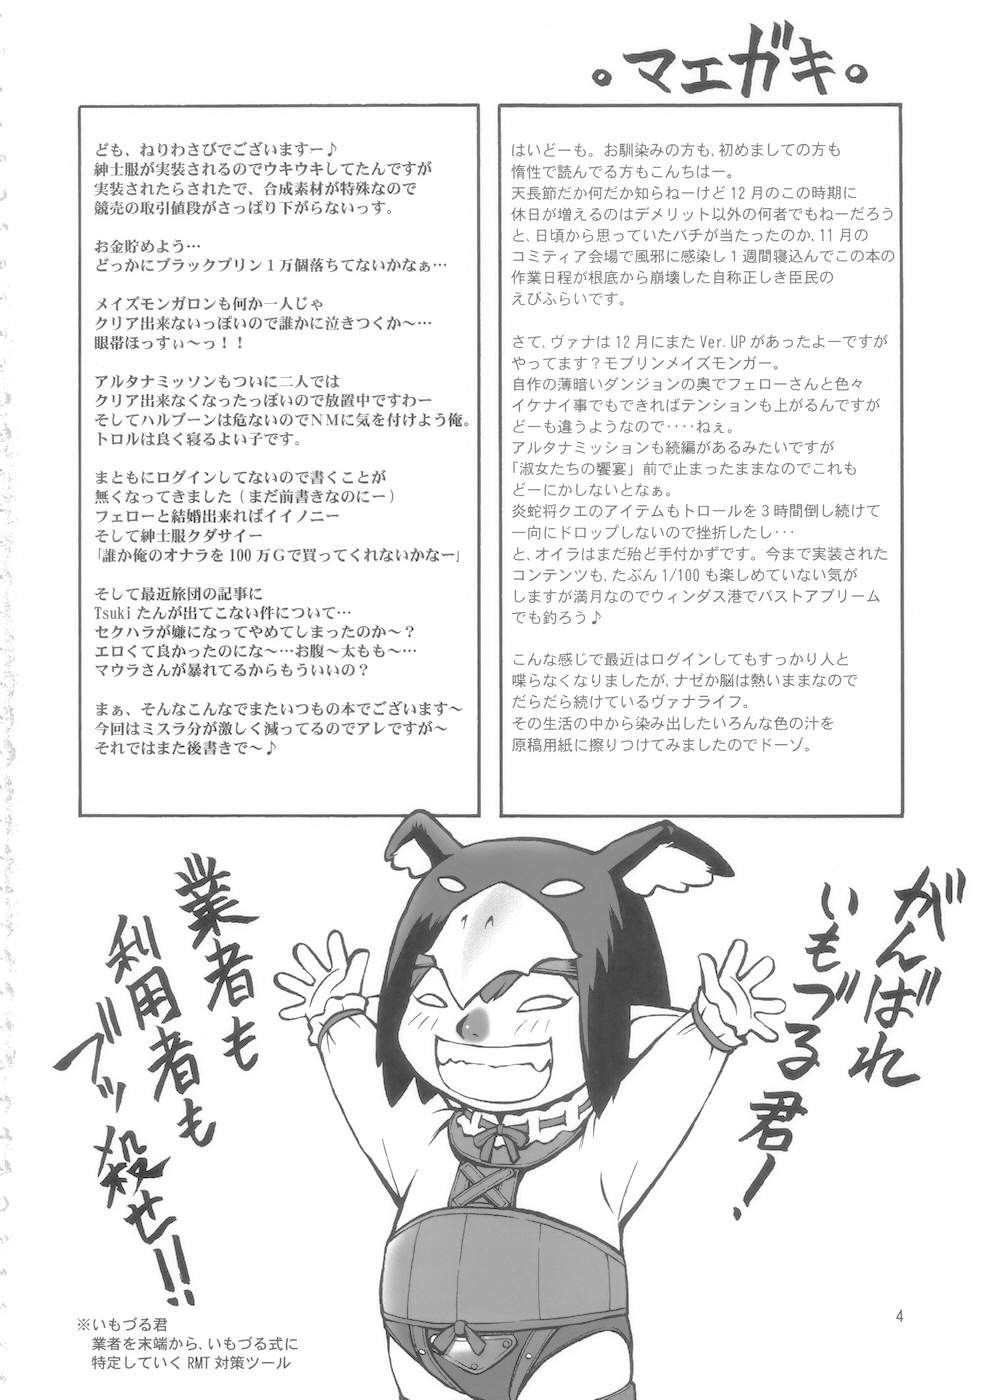 。マエガキ。
はいどーも。お馴染みの方も、初めましての方も
惰性で読んでる方もこんちはー。
天長節だか何だか知らねーけど12月のこの時期に
休日が増えるのはデメリット以外の何者でもねーだろう
と、日頃から思っていたバチが当たったのか、11月の
コミティア会場で風邪に感染し1週間寝込んでこの本の
作業日程が根底から崩壊した自称正しき臣民の
えびふらいです。
さて、ヴァナは12月にまたVer.UPがあったよーですが
やってます？モブリンメイズモンガー。
自作の薄暗いダンジョンの奥でフェローさんと色々
イケナイ事でもできればテンションも上がるんですが
どーも違うようなので‥‥ねぇ。
アルタナミッションも続編があるみたいですが
「淑女たちの饗宴」前で止まったままなのでこれも
どーにかしないとなぁ。
炎蛇将クエのアイテムもトロールを3時間倒し続けて
一向にドロップしないので挫折したし‥･
と、オイラはまだ殆ど手付かずです。今まで実装された
コンテンツも、たぶん1/100も楽しめていない気が
しますが満月なのでウィンダス港でバストアブリーム
でも釣ろう♪
こんな感じで最近はログインしてもすっかり人と
喋らなくなりましたが、ナゼか脳は熱いままなので
だらだら続けているヴァナライフ。
その生活の中から染み出したいろんな色の汁を
原稿用紙に擦りつけてみましたのでドーゾ。
ども、ねりわさびでございますー♪
紳士服が実装されるのでウキウキしてたんですが
実装されたらされたで、合成素材が特殊なので
競売の取引値段がさっぱり下がらないっす。
お金貯めよう…
どっかにブラックプリン１万個落ちてないかなぁ…
メイズモンガロンも何か一人じゃ
クリア出来ないっぽいので誰かに泣きつくか〜…
眼帯ほっすぃ〜っ！！
アルタナミッソンもついに二人では
クリア出来なくなったっぽいので放置中ですわー
そしてハルブーンは危ないのでＮＭに気を付けよう俺。
トロルは良く寝るよい子です。
まともにログインしてないので書くことが
無くなってきました（まだ前書きなのにー）
フェローと結婚出来ればイイノニー
そして紳士服クダサイー
「誰か俺のオナラを100万Ｇで買ってくれないかなー」
そして最近旅団の記事に
Tsukiたんが出てこない件について…
セクハラが嫌になってやめてしまったのか〜？
エロくて良かったのにな〜…お腹〜太もも〜…
マウラさんが暴れてるからもういいの？
まぁ、そんなこんなでまたいつもの本でございます〜
今回はミスラ分が激しく減ってるのでアレですが〜
それではまた後書きで〜♪
がんばれ
いもづる君！
業者も
利用者も
ブッ殺せ!!
※いもづる君
業者を末端から、いもづる式に
特定していくRMT対策ツール
4